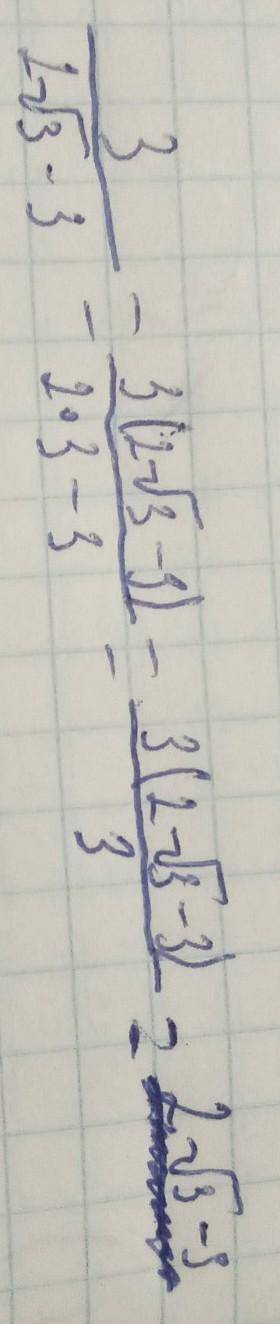 3/(2√3 - 3) = 3(2√3 - 3)/(2·3 - 3) = 3(2√3 - 3)/3 = 2√3 - 3